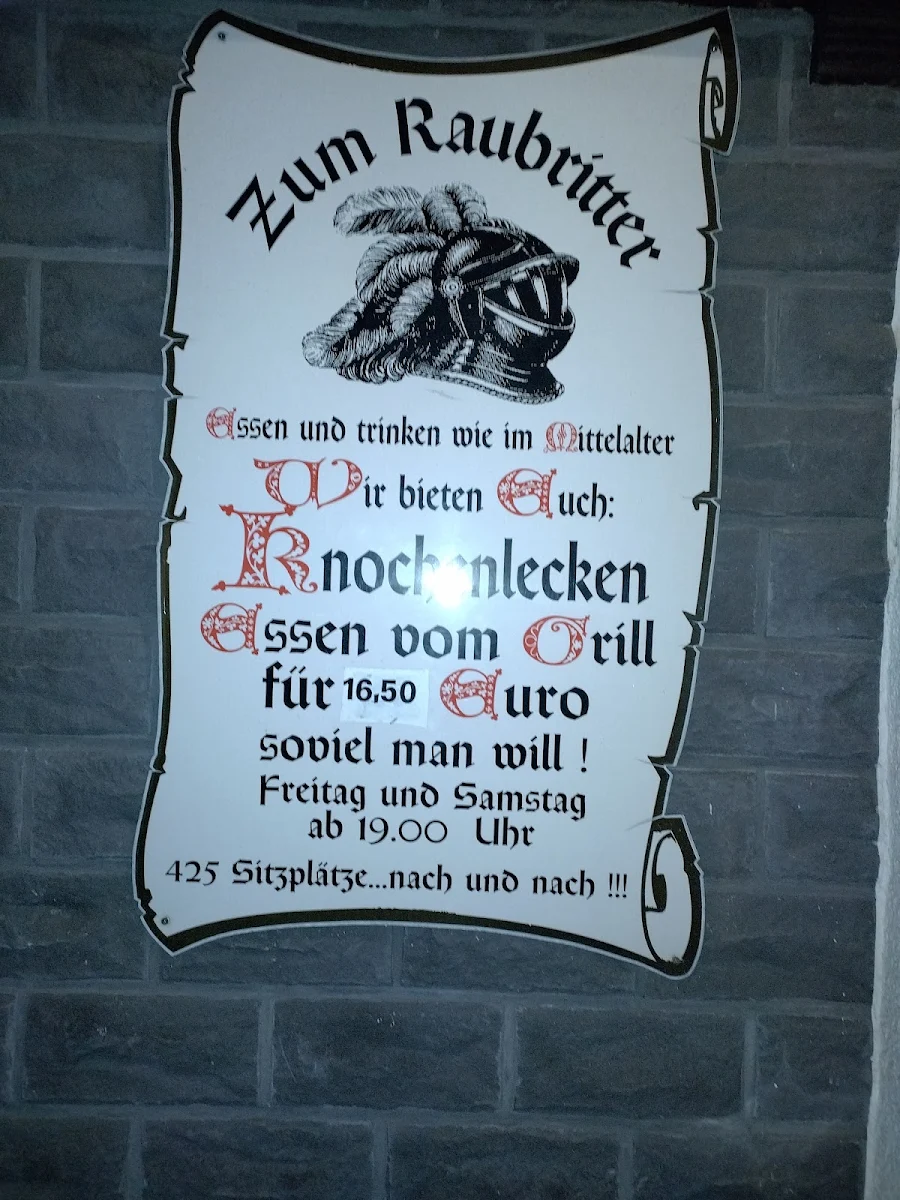 Zum Raubritter
Essen und trinken wie im Mittelalter
Wir bieten Euch:
Knochenlecken
Essen vom Grill
für 16,50 Euro
soviel man will !
Freitag und Samstag
ab 19.00 Uhr
425 Sitzplätze...nach und nach !!!